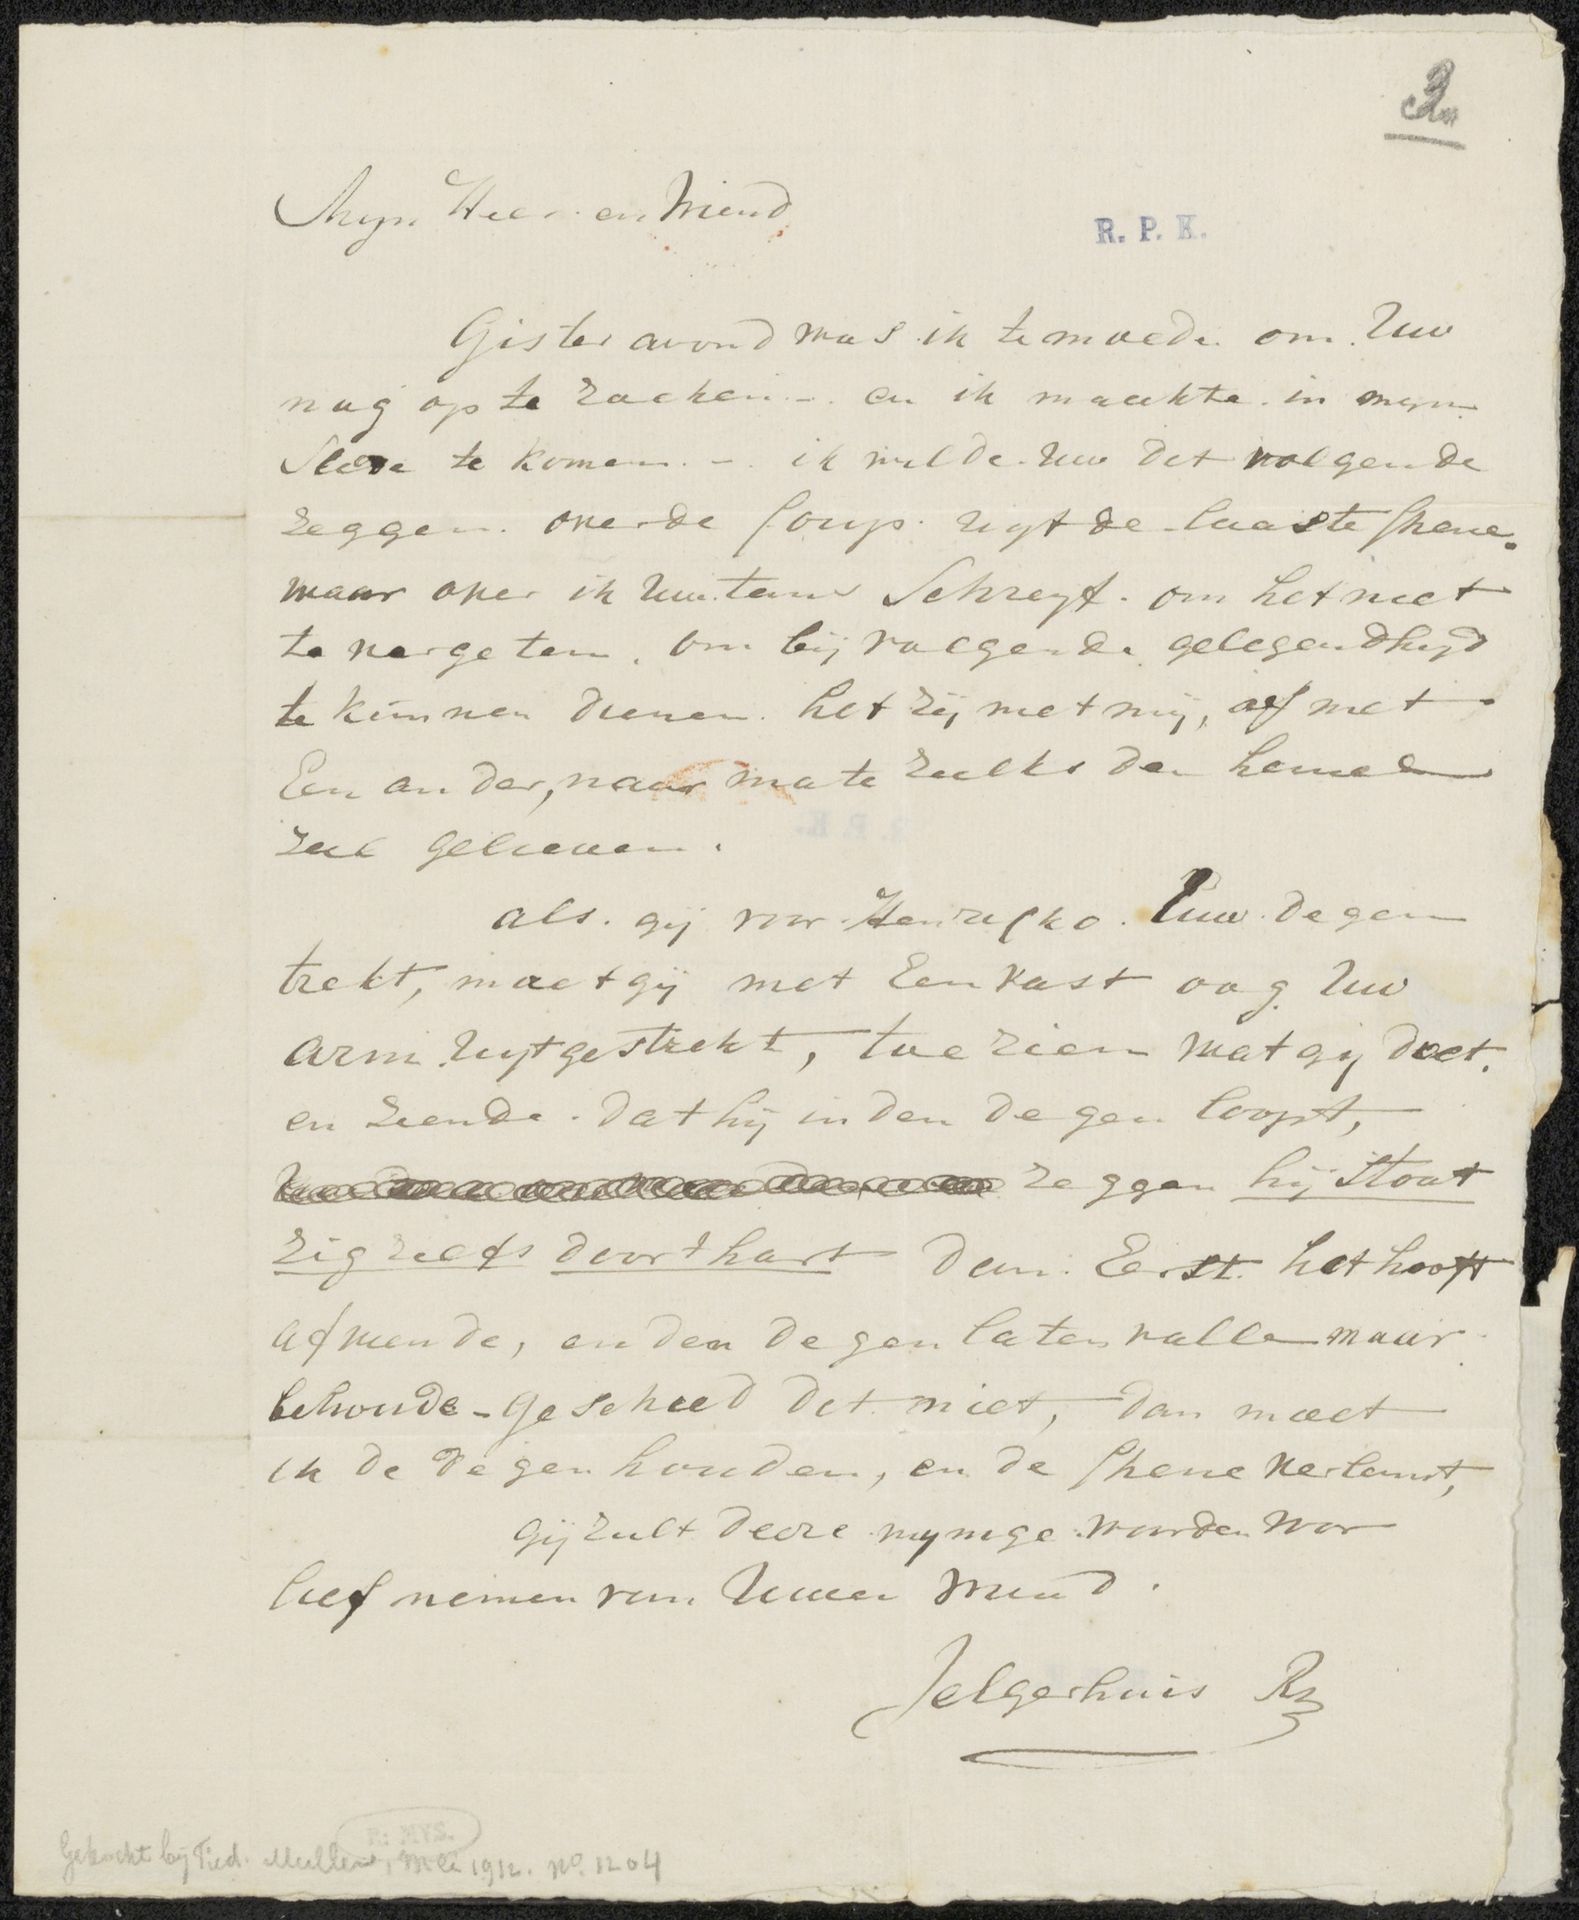 Myn Heer en Vriend
R. P. K.
Gister avond was ik te moede om Uw
nog op te zoeken – en ik maakte in myn
te komen – ik wilde Uw det volgende
zeggen over de Coup uyt de laaste shene.
waar over ik Uw tans Schreyf. om het niet
te vergeten. om bij volgende gelegendhyd
te kunnen dienen het zij met mij, of met
Een ander, naar mate zulks den hemel
zal gelieven.
als gij voor Uw degen
trekt, moet gij met Een vast oog Uw
arm uytgestrekt, toe zien wat gij doet.
en ziende dat hij in den degen loopt,
zeggen hij stoot
zig zelfs door 't hart dan Eerst het hooft
afwende, en den degen laten valle maar
behoude – geschied det niet, dan moet
ik de degen houden, en de shene verlamt,
gij zult deeze wynige woorden voor
lief nemen van Uwen Vriend.
Jelgerhuis Rz
Gekocht bij Fred. Muller, Mei 1912. No. 1204